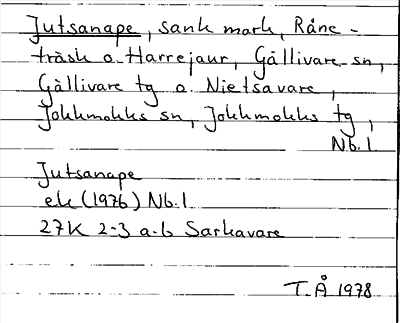 Jutsanape, sank mark, Råne-
träsk o. Harrejaur, Gällivare sn,
Gällivare tg o. Nietsavare,
Jokkmokks sn, Jokkmokks tg,
Nb.l
Jutsanape
ek (1976) Nb.l
27K 2-3 a-b Sarkavare
T.Å 1978